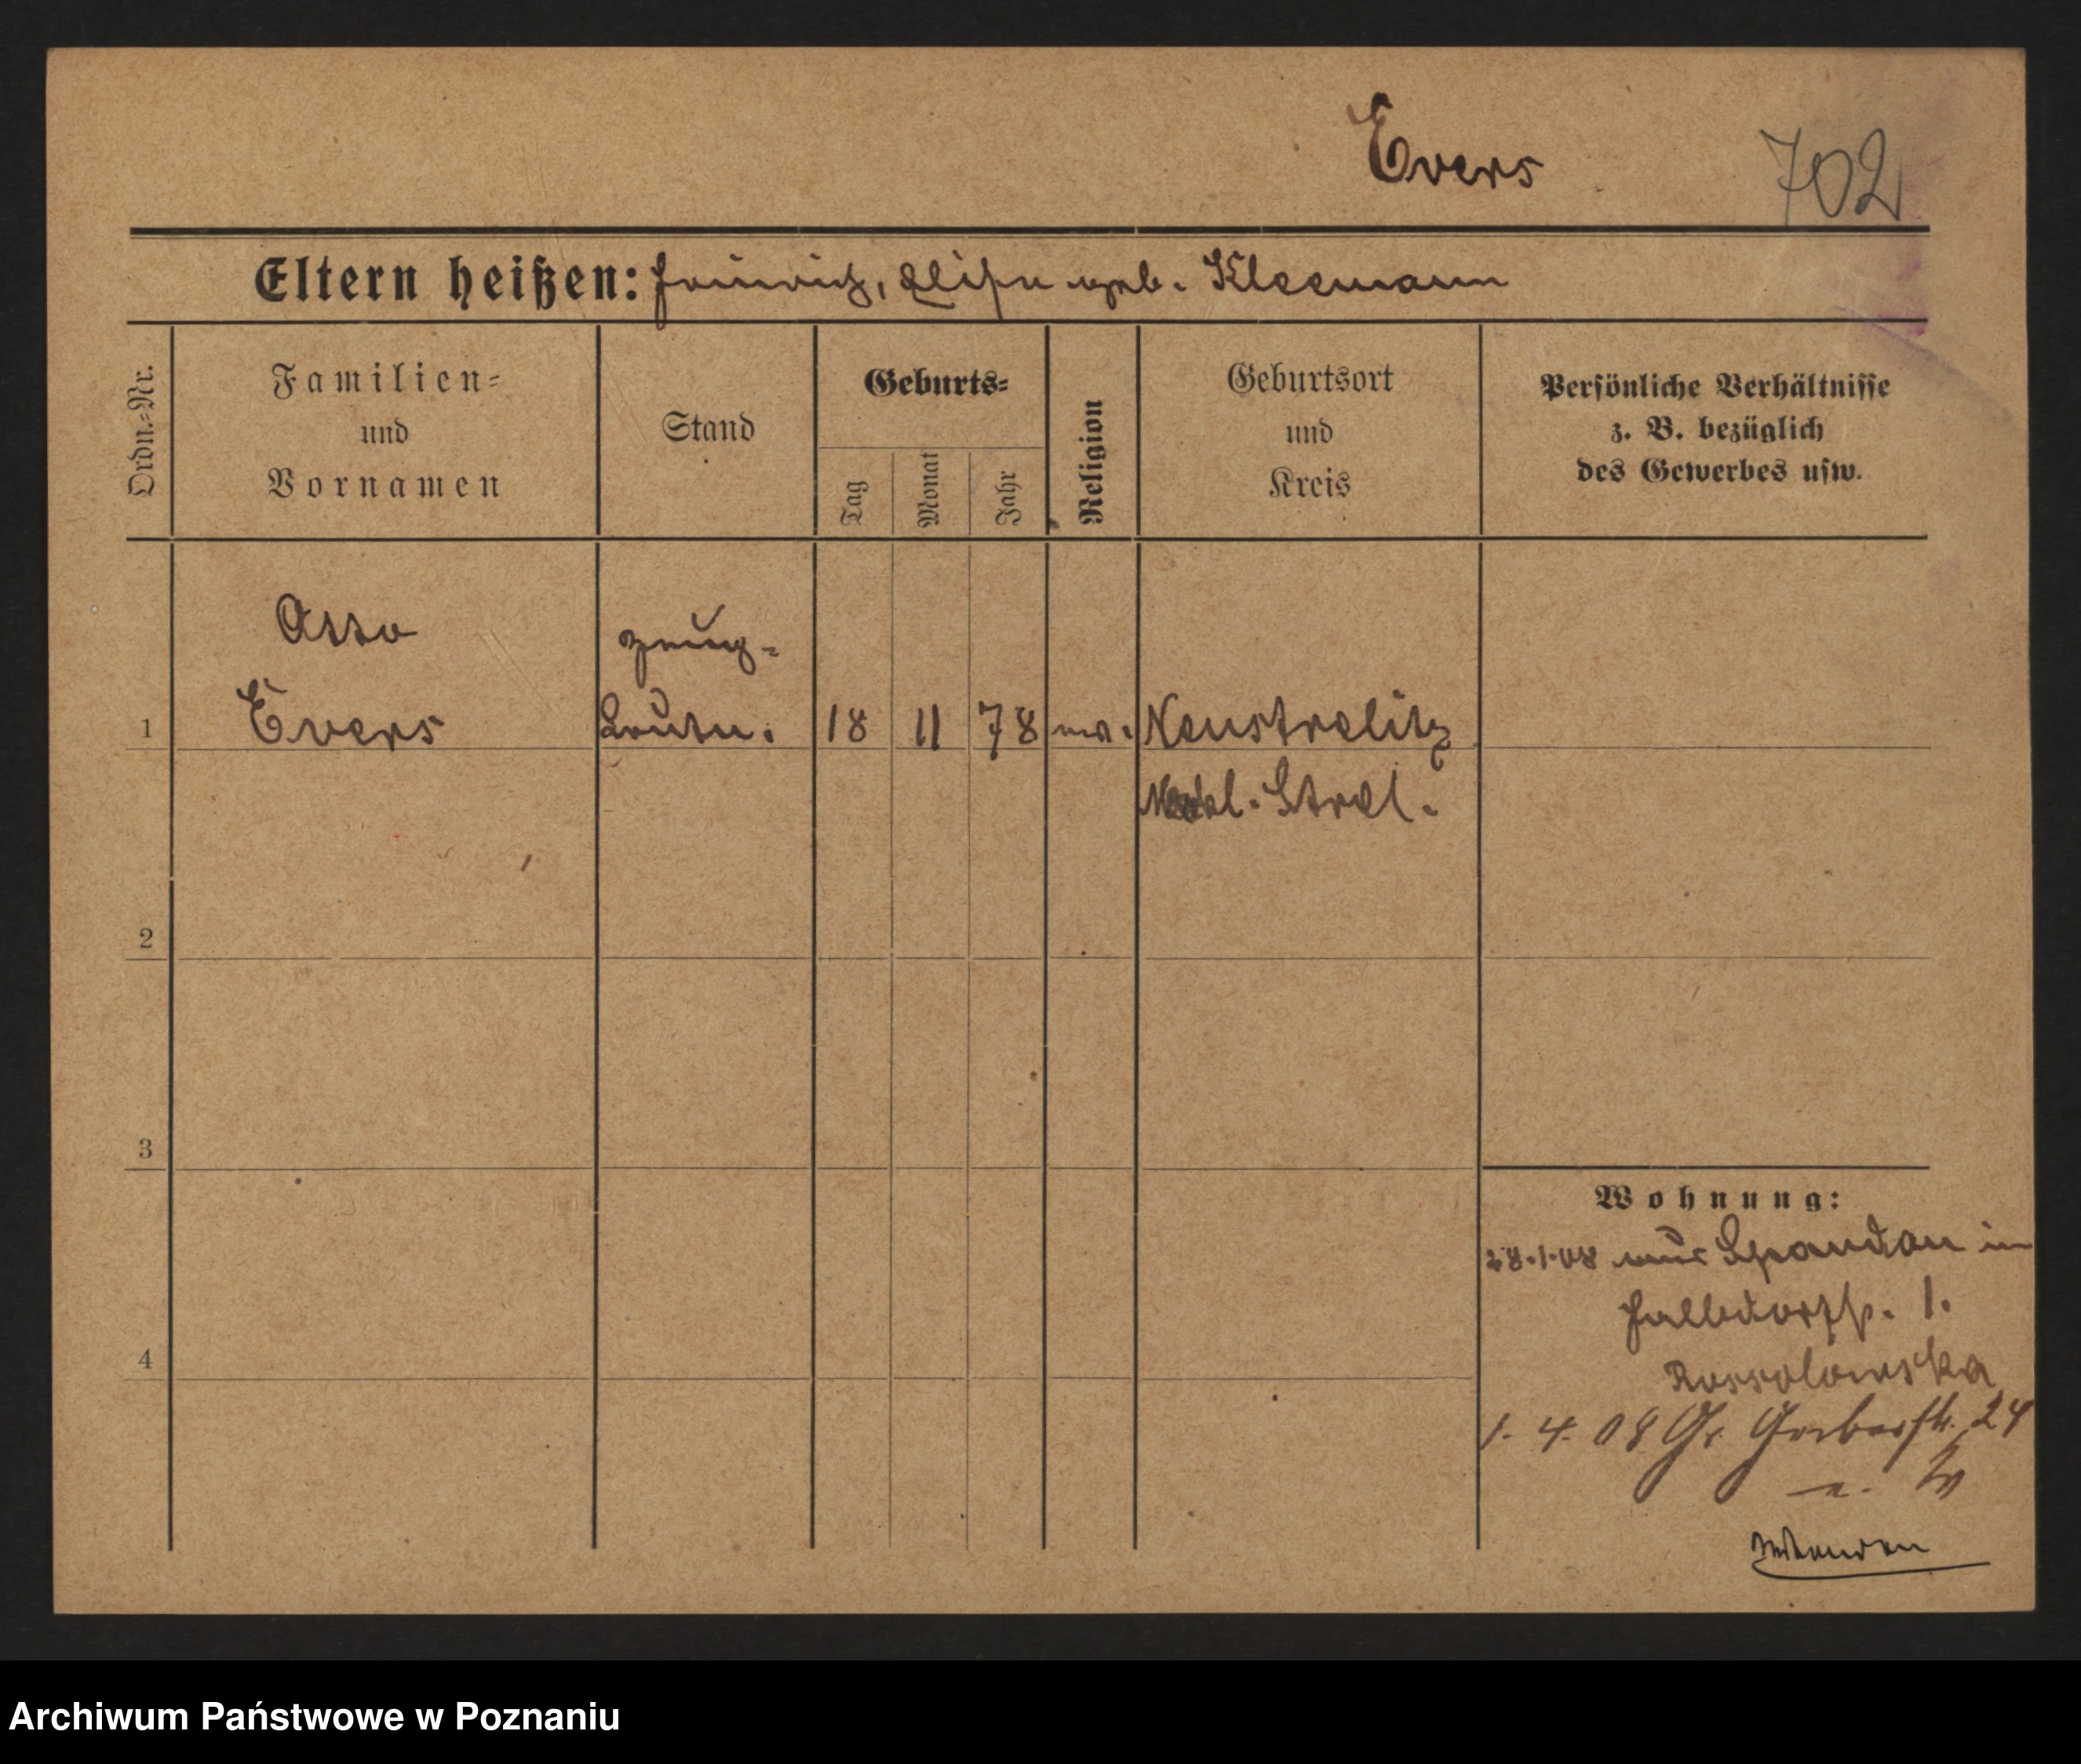 Evers
702
Eltern heißen: Heinrich, Elise geb. Kleemann
Ordn.-Nr.
Familien-
und
Vornamen
Stand
Geburts-
Tag
Monat
Jahr
Religion
Geburtsort
und
Kreis
Persönliche Verhältnisse
z. B. bezüglich
des Gewerbes usw.
1
Otto
Evers
Zeug-
Leutn.
18
11
78
ev.
Neustrelitz
Meckl. Strel.
2
3
4
Wohnung:
28.1.08 aus Spandau in
Halbdorfstr. 1.
1. 4. 08 Gr. Gerberstr. 24
Archiwum Państwowe w Poznaniu